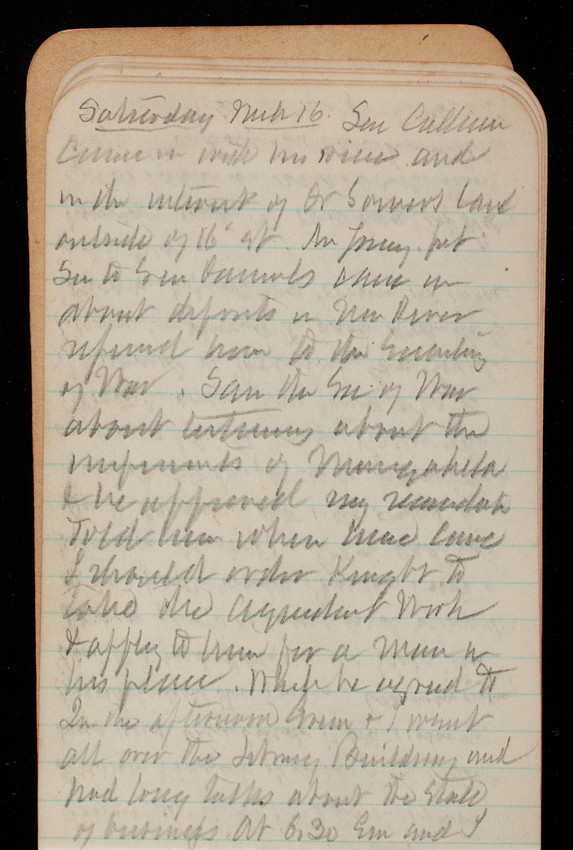 Saturday Mch 16. Sen Cullum
Came in with his niece and
in the interest of Dr Somers land
outside of 16" st.
Sen to Gen Daniels came in
about deposits in New River
referred him to the Secretary
of War. Saw the Sec. of War
about testimony about the
improvements of Monongahela
& he approved my
Told him when came
I should order Knight to
take the aqueduct work
& apply to him for a man in
his place. Which he agreed to
In the afternoon Green & I went
all over the Library Building and
had long talks about the state
of business. At 6.30 Em and I